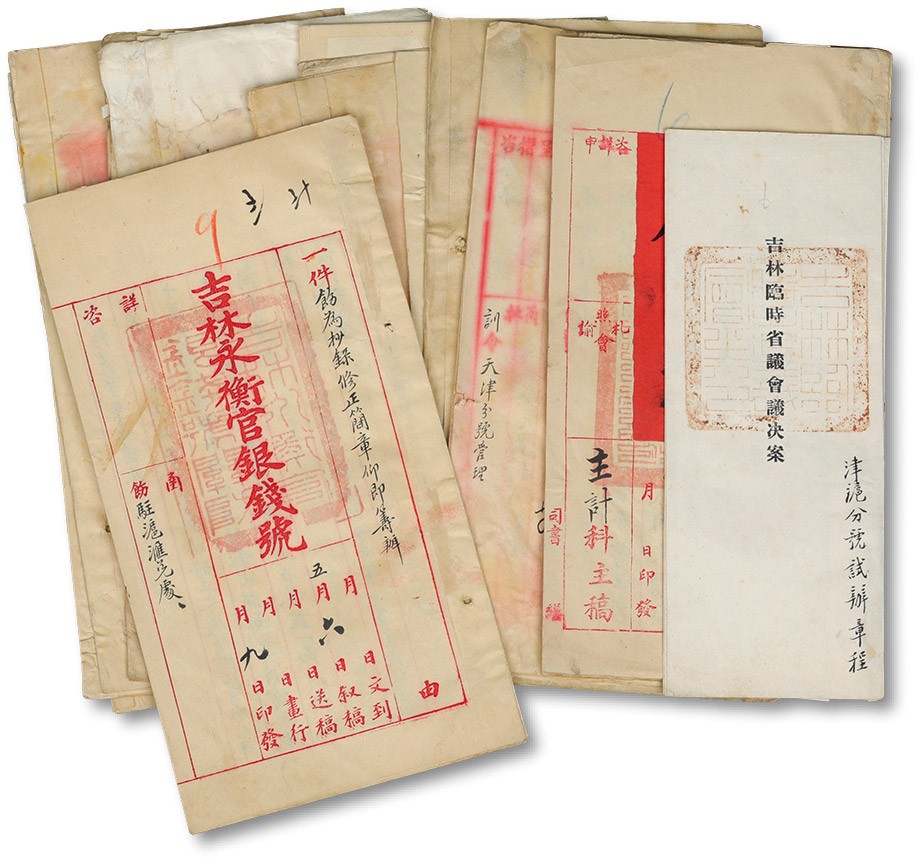 9
一件飭為抄錄修正簡章仰即籌辦
由
吉林永衡官銀錢號
詳
咨
飭駐滬滙兌處
月 日文到
五月六日叙稿
月 日送稿
月 日畫行
月九日印發
訓令天津分號管理
司書
咨詳申
札
照會
諭
主計科主稿
月 日印發
吉林臨時省議會議決案
津滬分號試辦章程